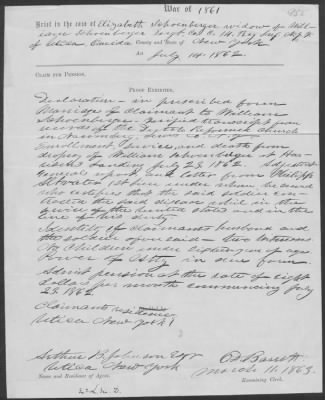 War of 1861
Brief in the case of Elizabeth Schoenberger widow of Will-
iam Schoenberger Sergt. Co. 14 Reg
of Utica Oneida County and State of New York
Act July 14. 1862.
CLAIM FOR PENSION.
PROOF EXHIBITED,
Declaration - in prescribed form
Marriage of Claimant to William
Schoenberger. verified transcript from
records of the Reformed Church
in
Enrollment, Service, and death from
dropsy of William Schoenberger at Har-
July 23, 1862. Adjutant
General report and letter from Philipp
under whom he served
who certifies that the said soldier con-
tracted the said disease while in the
service of the United States and in the
line of his duty
Identity of claimants husband and
the soldier aforesaid - two witnesses.
No Children under sixteen years of age
Power of Atty in due form -
Admit pension at the rate of eight
dollars per month commencing July
23. 1862
Claimants residence
Utica New York
Arthur B. Johnson Esqr
Utica New York
C. D. Barrett
March 11. 1863.
Name and Residence of Agent.
Examining Clerk.